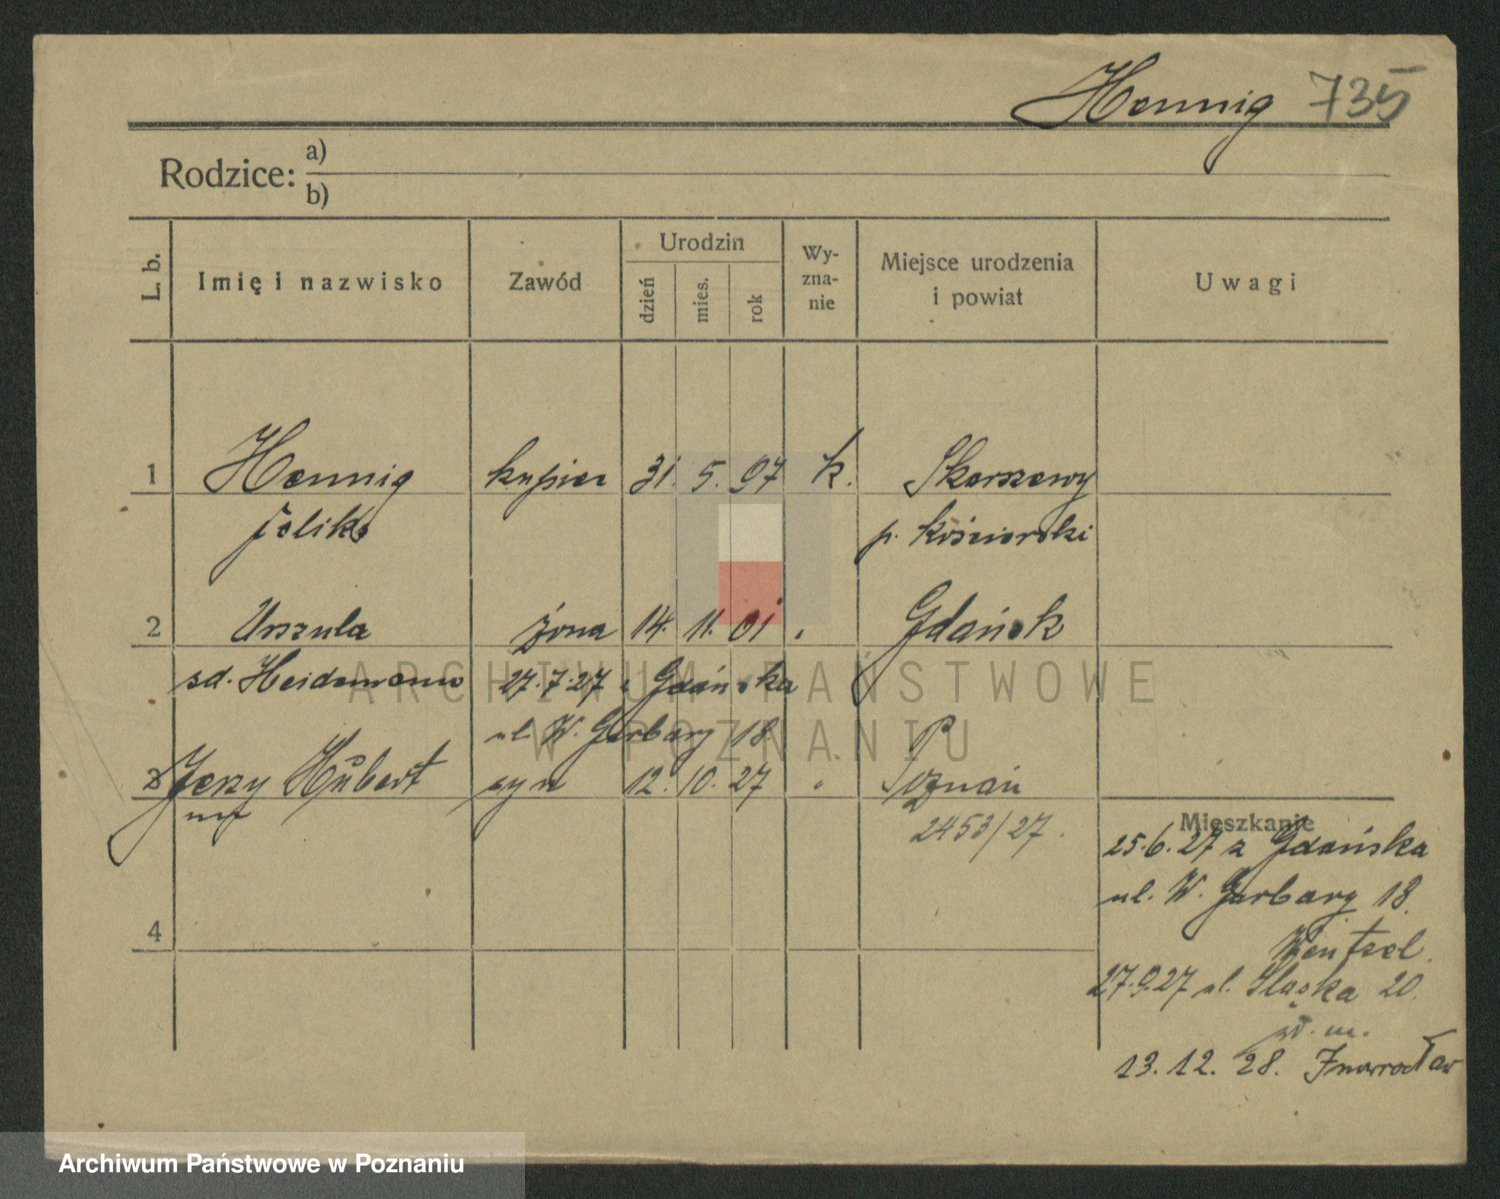 Hennig 735
Rodzice: a)
b)
L. b. Imię i nazwisko Zawód Urodzin dzień mies. rok Wy-zna-nie Miejsce urodzenia i powiat Uwagi
1 Hennig kupiec 31. 5. 97 k. Skarszewy
Feliks p. kościerski
2 Urszula żona 14. 11. 01 " Gdańsk
sd. Heidemann 27.7.27 z Gdańska
ul. W. Garbary 18
3 Jerzy Hubert syn 12. 10. 27 " Poznań
2453/27.
Mieszkanie
25.6.27 z Gdańska
ul. W. Garbary 18.
Wentzel.
27.9.27 ul. Śląska 20.
wł. m.
13. 12. 28. Inowrocław
4
ARCHIWUM PAŃSTWOWE
W POZNANIU
Archiwum Państwowe w Poznaniu